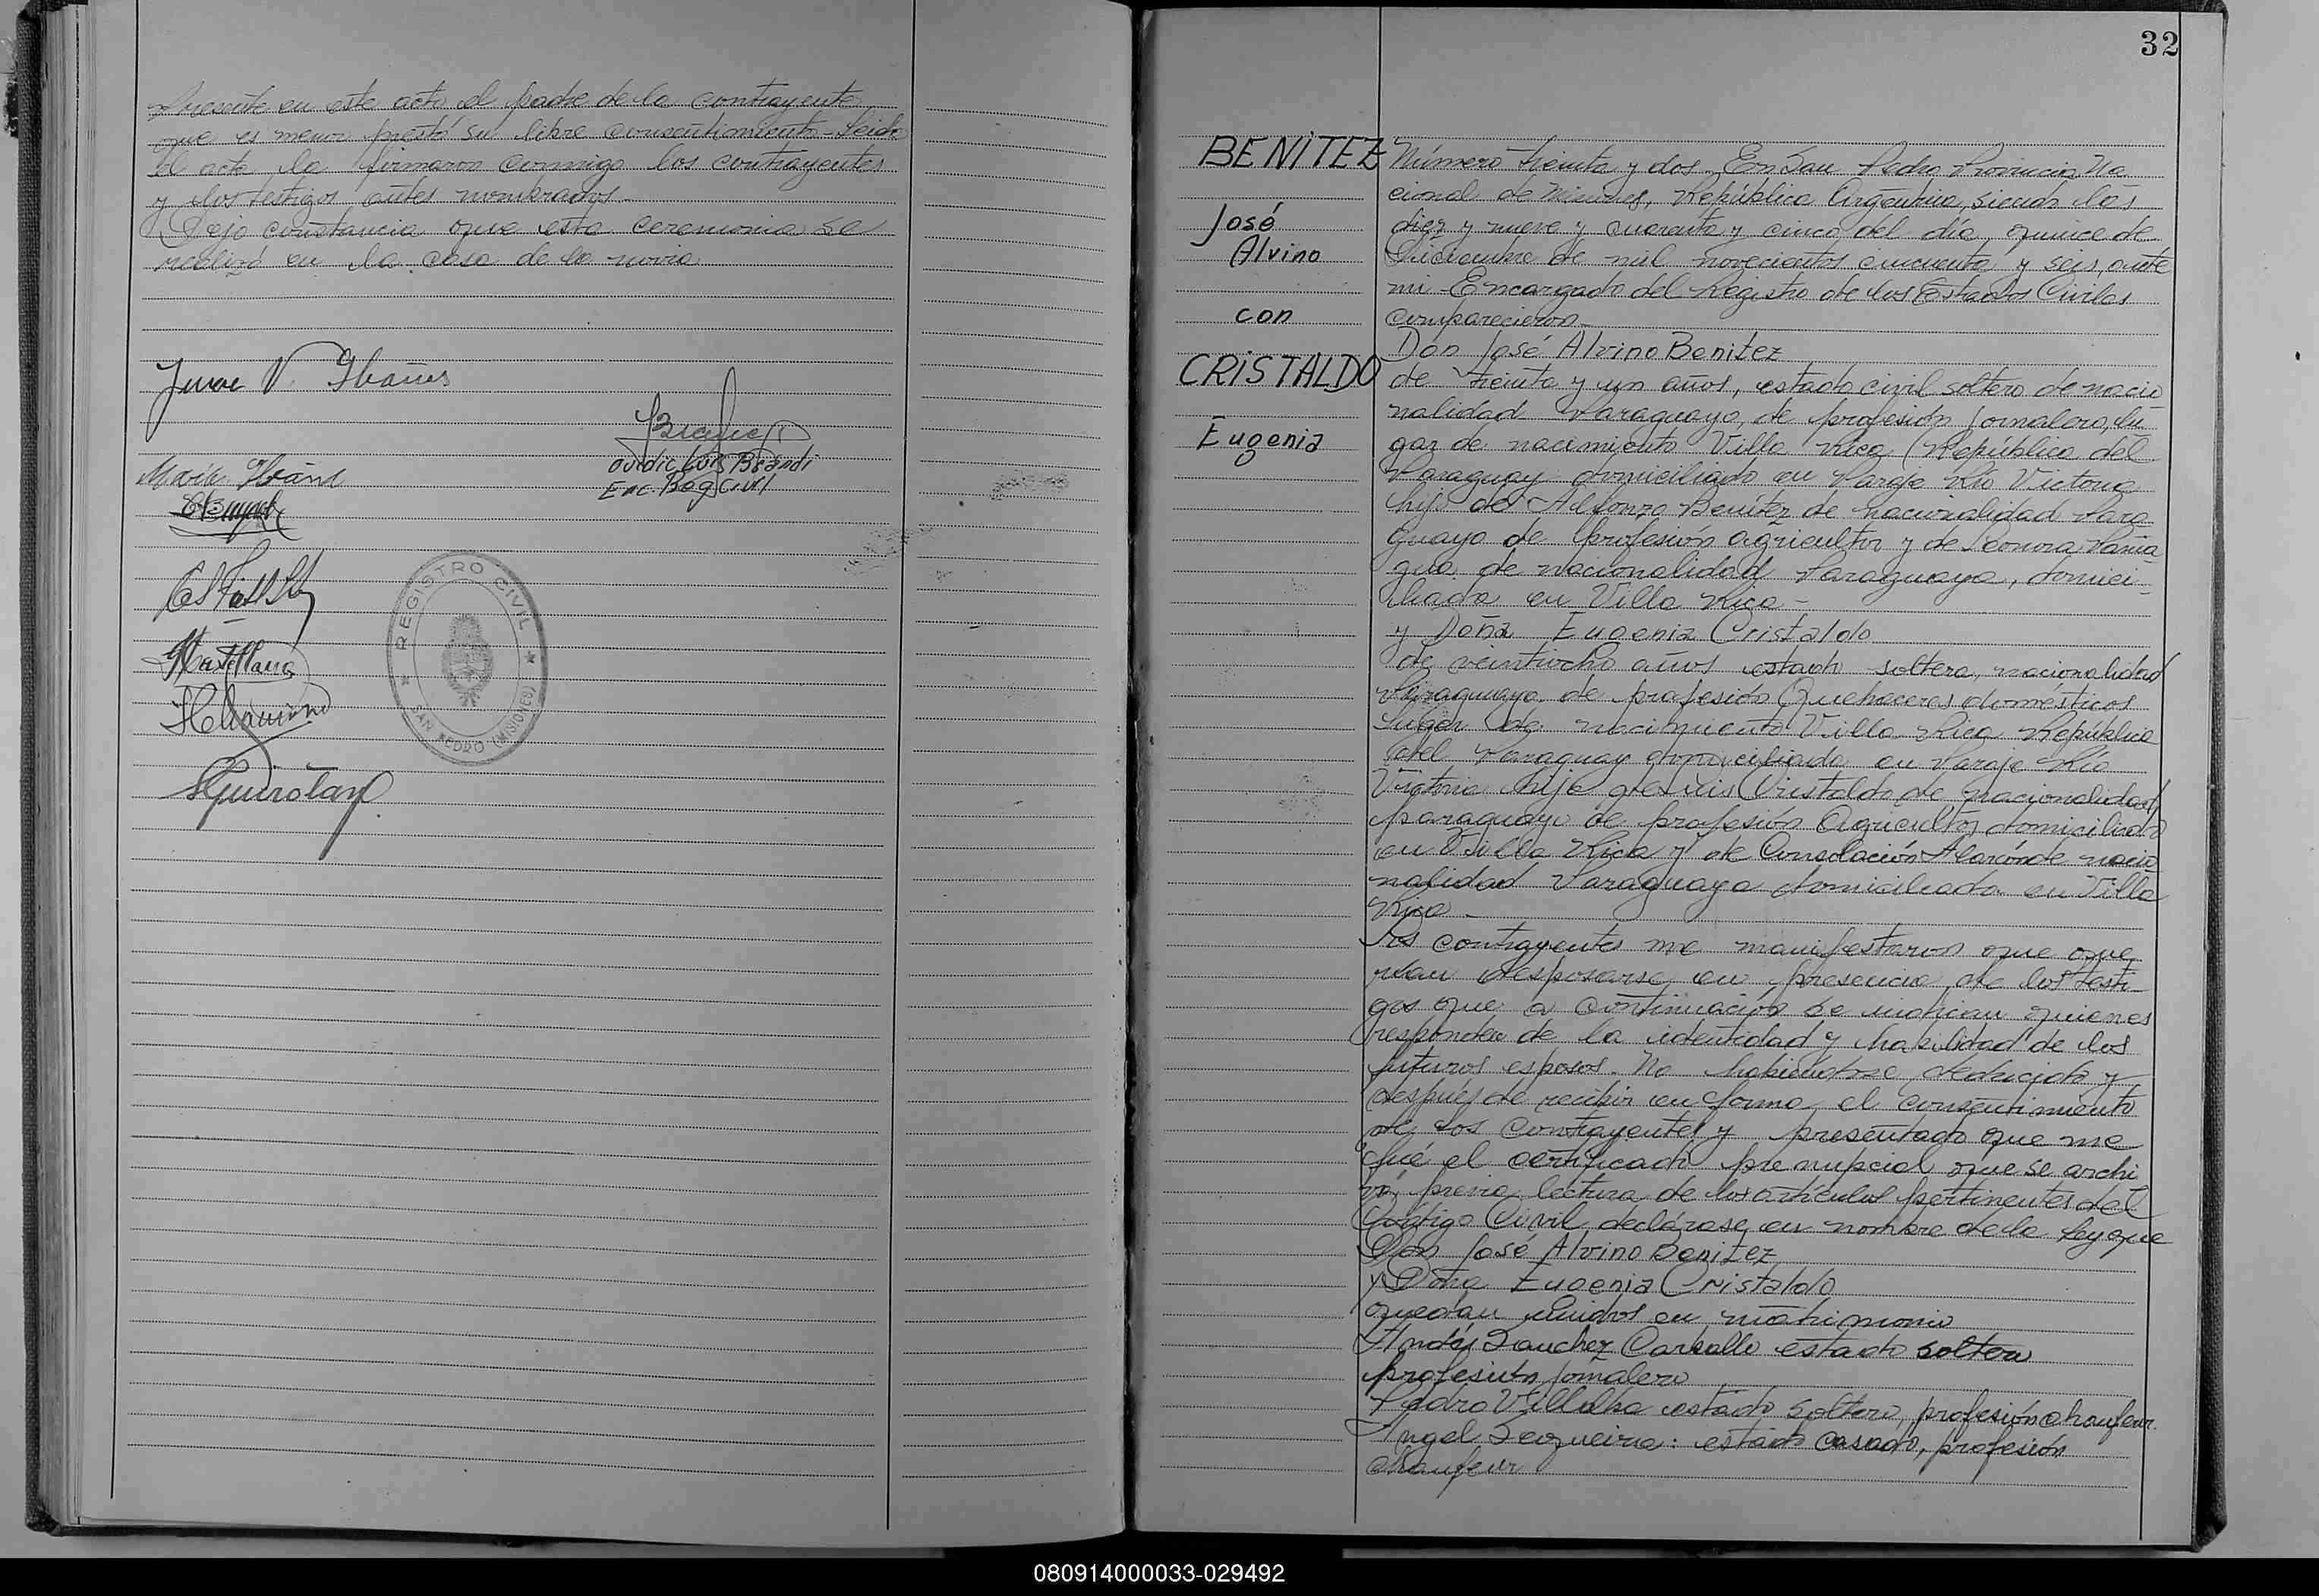 Presente en este acto el padre de la contrayente,
que es menor prestó su libre consentimiento - Leida
el acta, la firmaron conmigo los contrayentes
y los testigos antes nombrados -
Dejo constancia que esta ceremonia se
realizó en la casa de la novia
Ovidio Luis Brandi
Enc. Reg Civil
REGISTRO CIVIL
SAN PEDRO (MISIONES)
32
BENITEZ
José
Alvino
con
CRISTALDO
Eugenia
Número treinta y dos. En San Pedro Provincia Na
cional de Misiones, República Argentina, siendo las
diez y nueve y cuarenta y cinco del día, quince de
Diciembre de mil novecientos cincuenta y seis, ante
mi Encargado del Registro de los Estados Civiles
comparecieron -
Don José Alvino Benitez
de treinta y un años, estado civil soltero de nacio
nalidad Paraguayo, de profesión jornalero, lu
gar de nacimiento Villa Rica (República del
Paraguay domiciliado en Paraje Río Victoria
hijo de Alfonzo Benítez de nacionalidad Para
guayo de profesión agricultor y de Leonora Pania
gua de nacionalidad Paraguaya, domici-
liada en Villa Rica -
y Doña Eugenia Cristaldo
de veintiocho años estado soltera, nacionalidad
Paraguaya, de profesión Quehaceres domésticos
lugar de nacimiento Villa Rica República
del Paraguay domiciliada en Paraje Río
Victoria hija de Luis Cristaldo de nacionalidad
paraguayo de profesión Agricultor domiciliado
en Villa Rica y de Consolación Alarcón de nacio
nalidad Paraguaya domiciliada en Villa
Rica -
Los contrayentes me manifestaron que que
rían desposarse en presencia de los testi-
gos que a continuación se indican quienes
responden de la identidad y habilidad de los
futuros esposos. No habiéndose deducido y
después de recibir en forma el consentimiento
de los contrayentes y presentado que me
fué el certificado pre nupcial que se archi
va, previa lectura de los artículos pertinentes del
Código Civil, declárase en nombre de la Ley que
Don José Alvino Benitez
y Doña Eugenia Cristaldo
quedan unidos en matrimonio
Andés Sanchez Carballo estado soltero
profesión jornalero
Pedro Villalba estado soltero, profesión chaufeur.
Angel Sequeira: estado casado, profesión
chaufeur
080914000033-029492